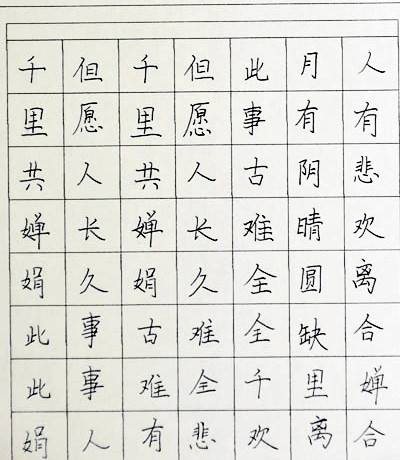 人有悲欢离合
月有阴晴圆缺
此事古难全
但愿人长久
千里共婵娟
但愿人长久
千里共婵娟
此事古难全
此事难全千里婵
娟人有悲欢离合